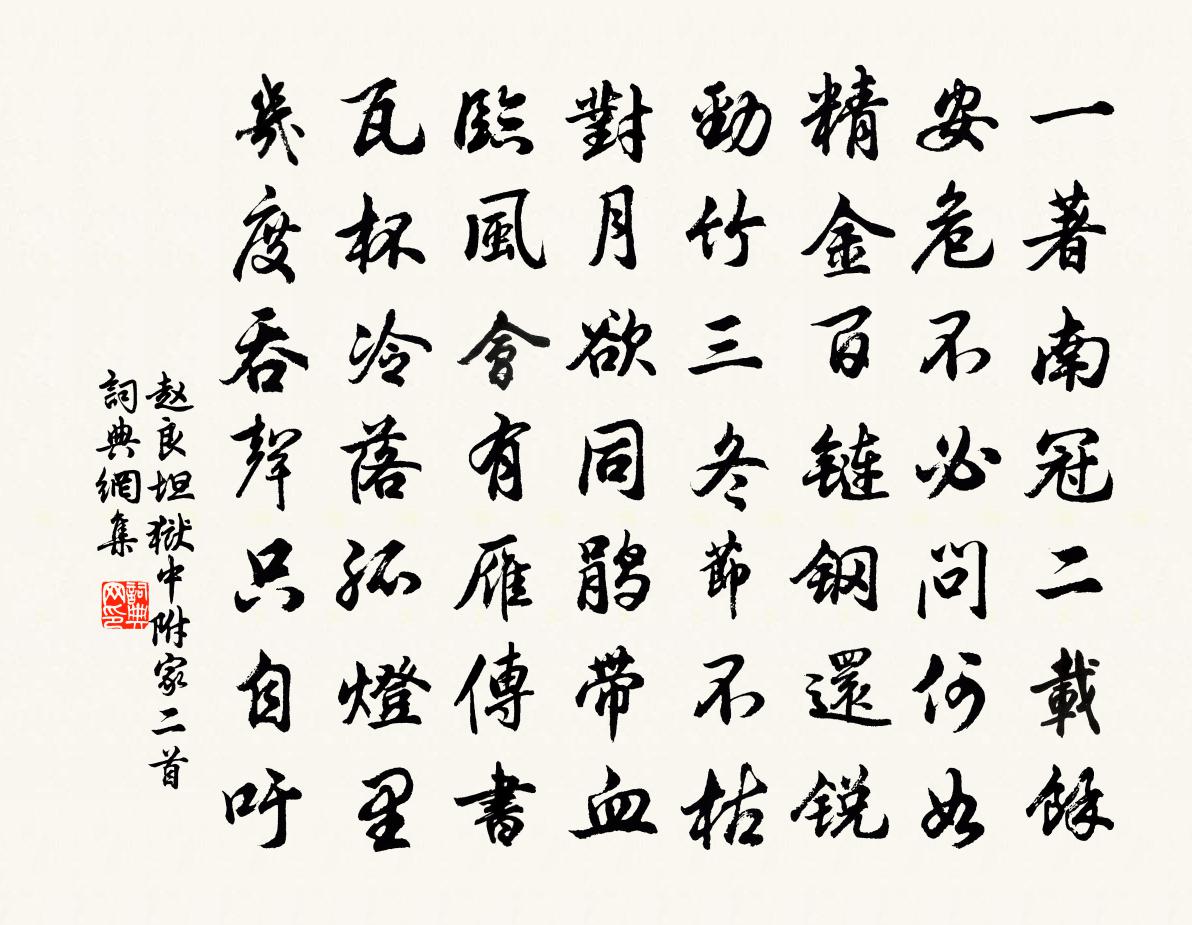 一著南冠二載餘
安危不必問何如
精金百鏈鋼還銳
勁竹三冬節不枯
對月欲同鵑帶血
臨風會有雁傳書
瓦杯冷落孤燈里
幾度吞聲只自吁
赵良坦獄中附家二首
詞典網集
詞典
网印